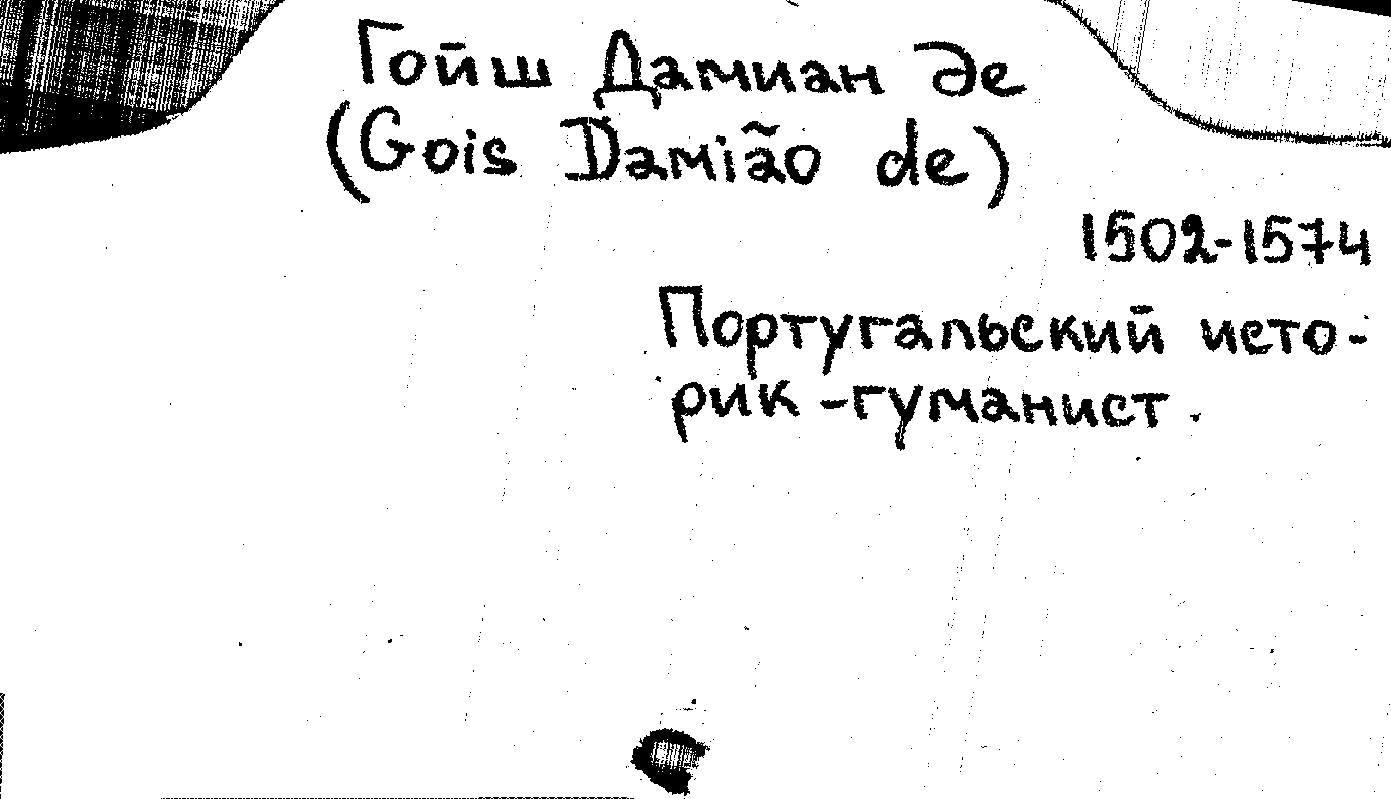 Гойш Дамиан де
(Gois Damião de)
1502-1574
Португальский исто-
рик-гуманист.